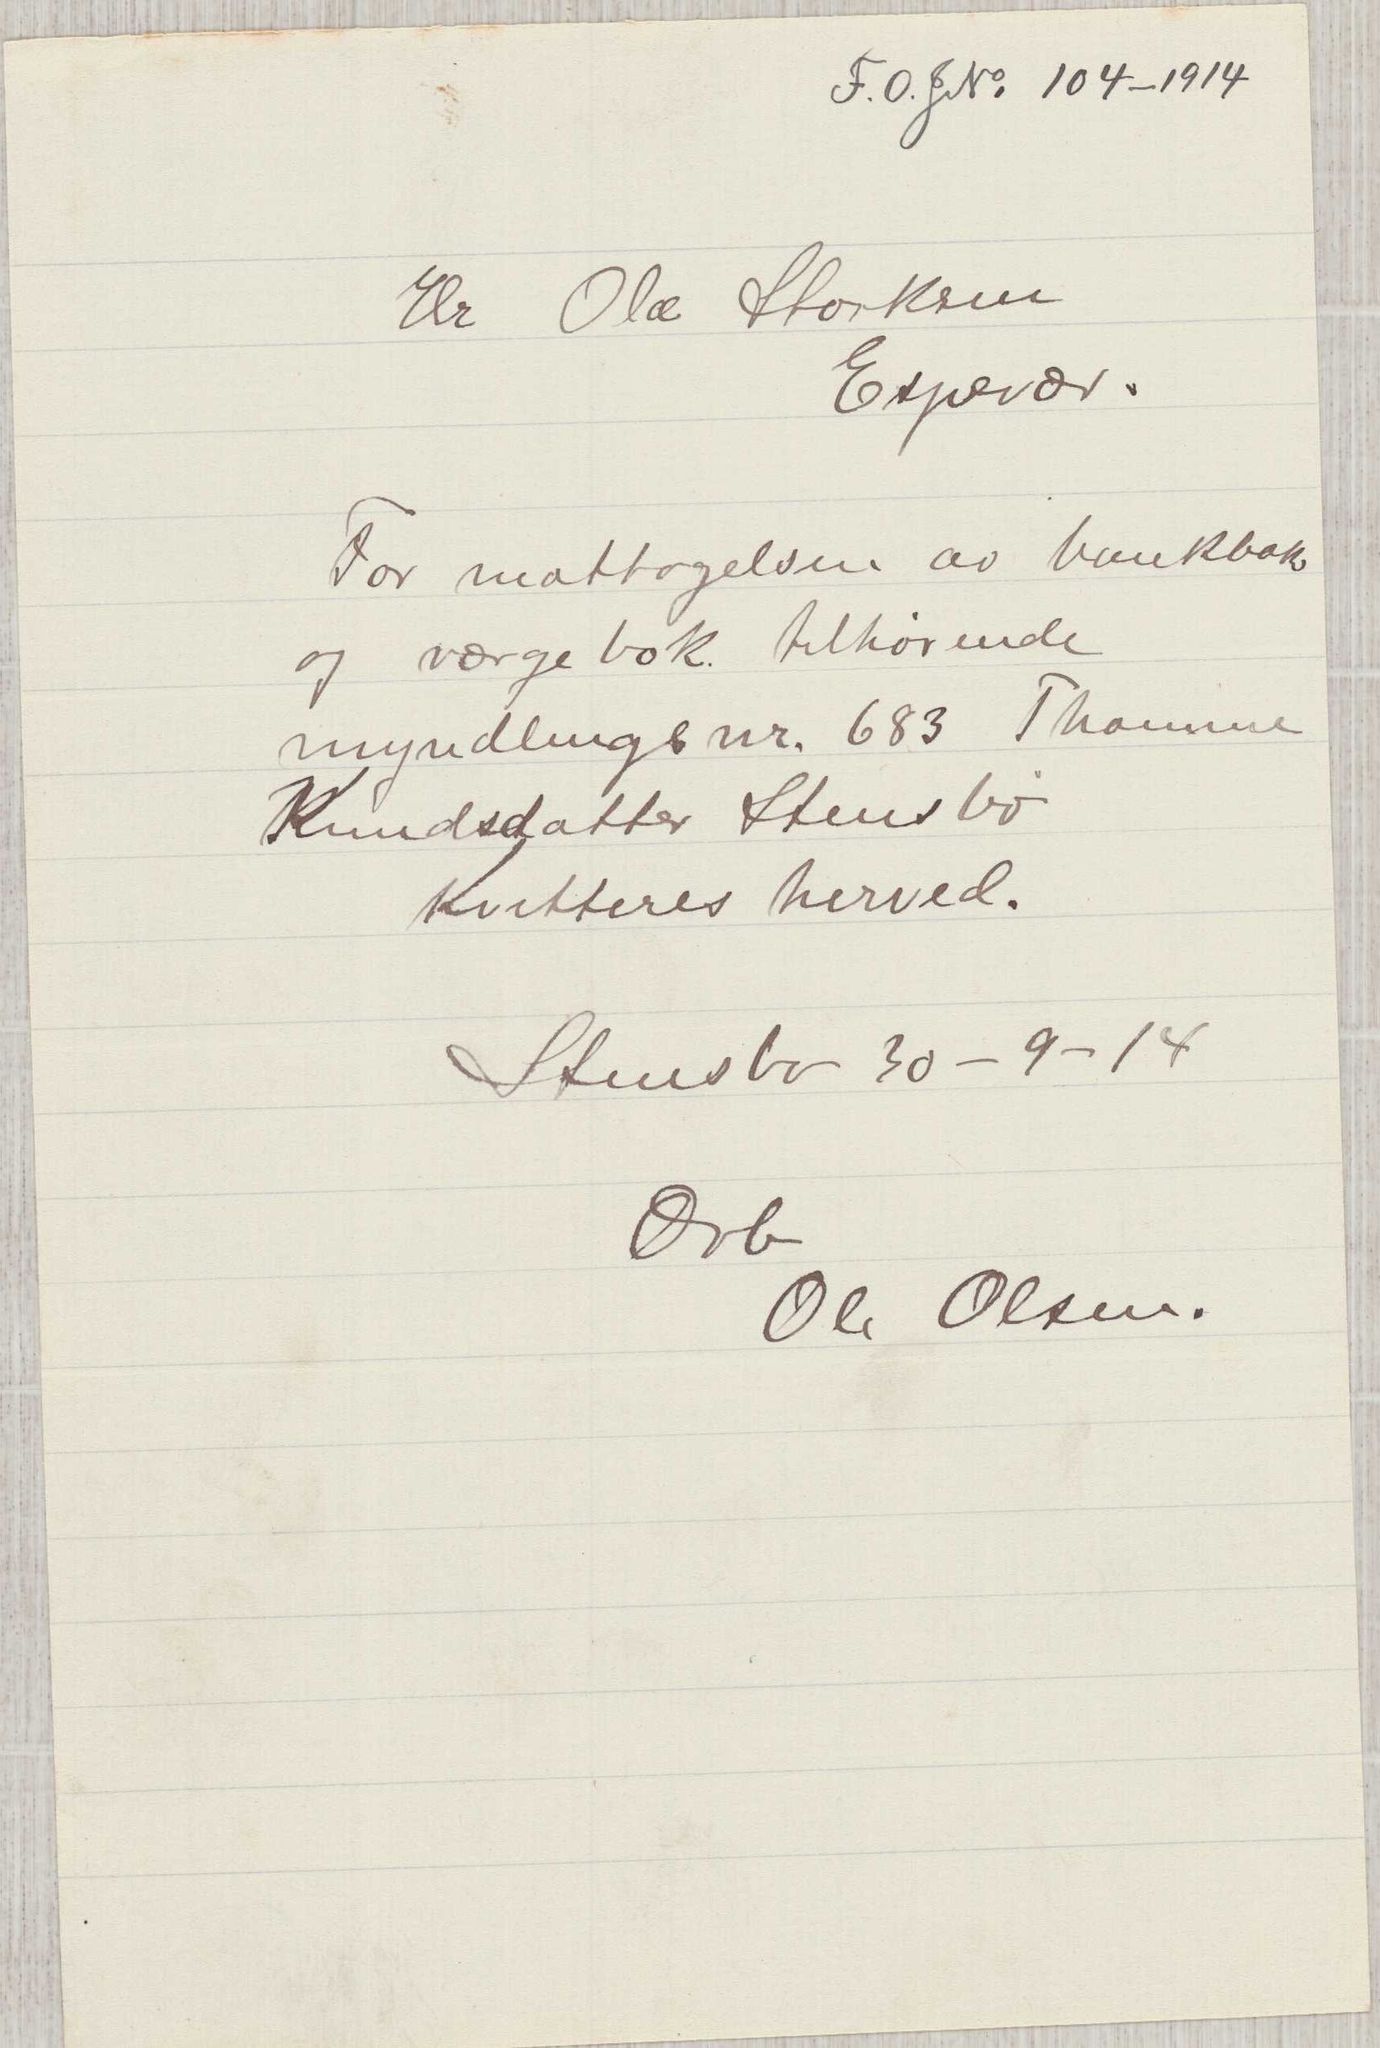 F.O.J.No. 104-1914
Hr Ole Storksen
Espevær.
For mottagelsen av bankbok
og værgebok tilhørende
myndlings nr. 683 Thomine
Knudsdatter Stensbø
kvitteres herved.
Stensbø 30-9-14
Ærb
Ole Olsen.